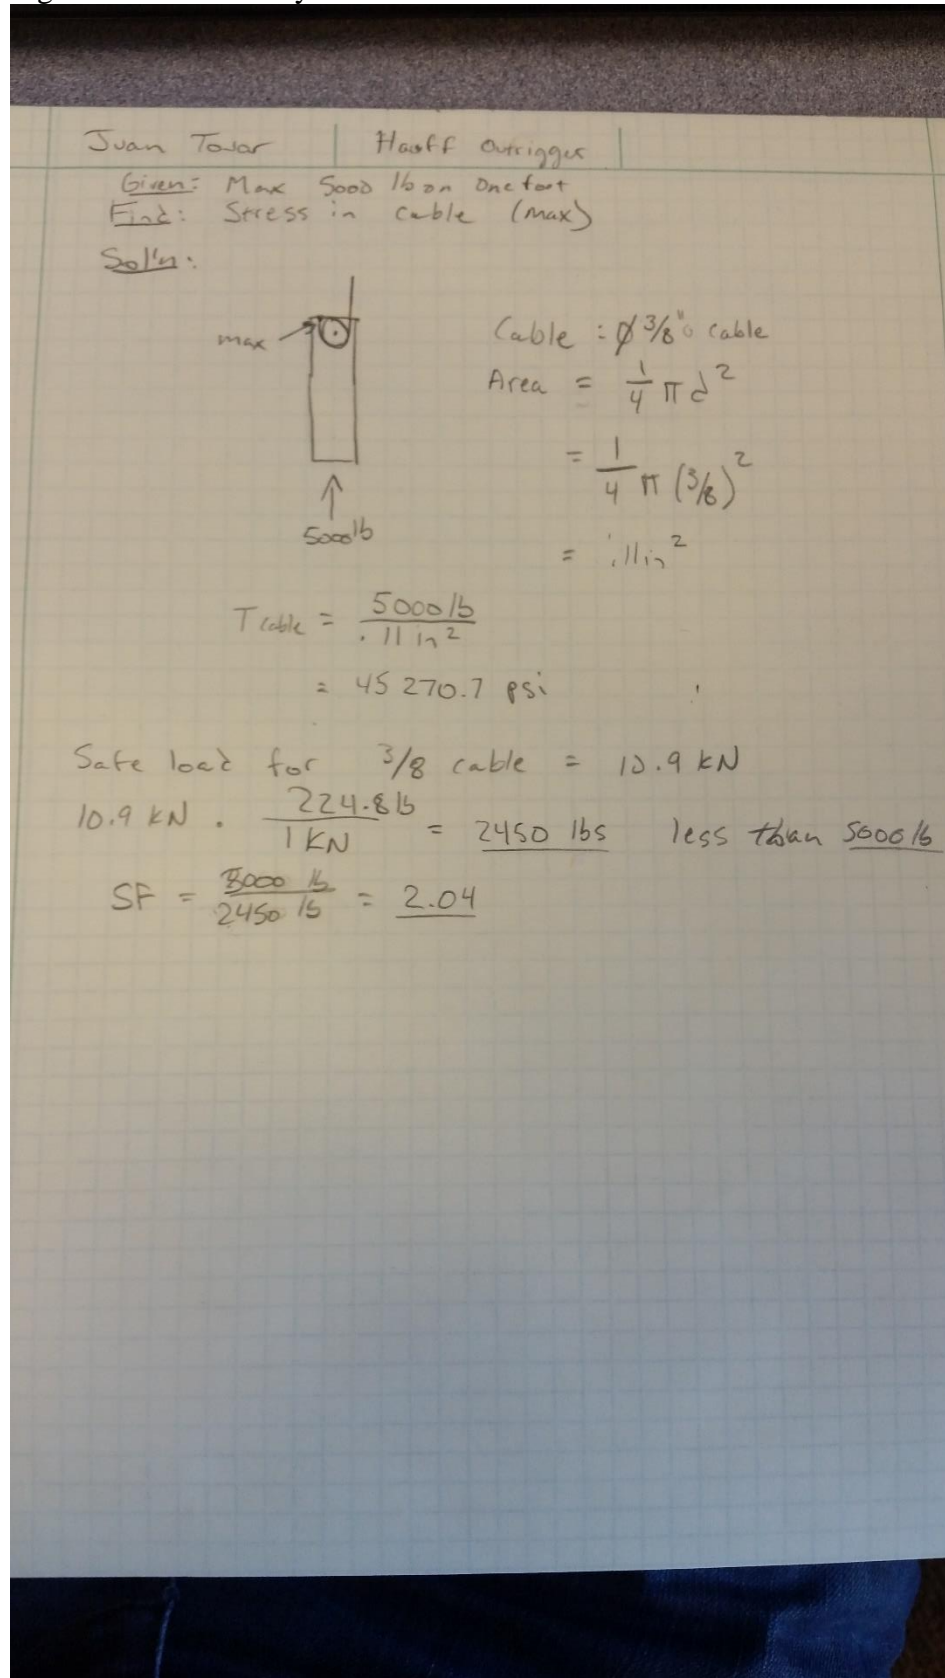 Juan Tovar Hauff Outrigger
Given: Max 5000 lb on One foot
Find: Stress in cable (max)
Sol'n:
max
5000 lb
Cable : Ø 3/8" cable
Area = 1/4 π d²
= 1/4 π (3/8)²
= .11 in²
T cable = 5000 lb / .11 in²
= 45 270.7 psi
Safe load for 3/8 cable = 10.9 kN
10.9 kN . 224.8 lb / 1 KN = 2450 lbs less than 5000 lb
SF = 5000 lb / 2450 lb = 2.04